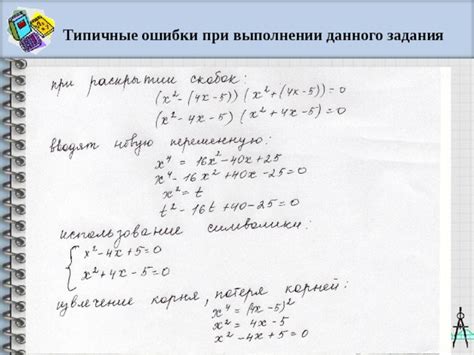 Типичные ошибки при выполнении данного задания
при раскрытии скобок:
(x²-(4x-5))(x²+(4x-5))=0
(x²-4x-5)(x²+4x-5)=0
вводят новую переменную:
x⁴ = 16x²-40x+25
x⁴-16x²+40x-25=0
x²=t
t²-16t+40-25=0
использование символики:
{ x²-4x+5=0
x²+4x-5=0
извлечение корня, потеря корней:
x⁴=(4x-5)²
x²=4x-5
x²-4x+5=0